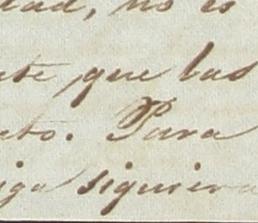 dad, no es
te, que las
to. Para
iga siquiera